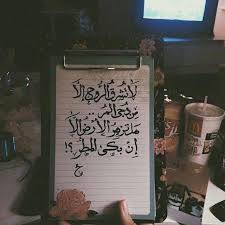 لَا تُشرقُ الرُّوحُ إلَّا
مِن دُجَى ألمٍ
هل تزهرُ الأرضُ إلَّا
إنْ بكىَ المطرُ ؟!
ع